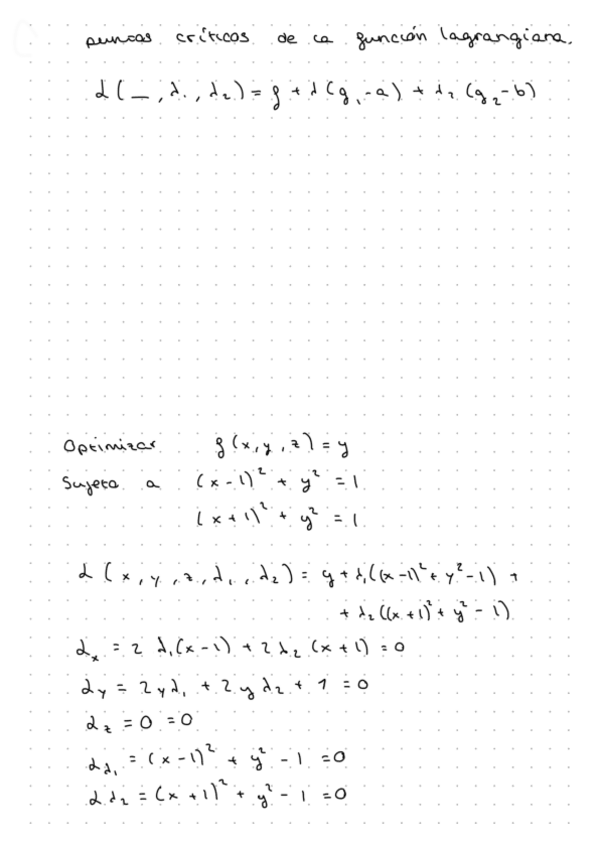 puntos críticos de la función lagrangiana.
L(_, λ₁, λ₂) = f + λ(g₁-a) + λ₂(g₂-b)
Optimizar f(x,y,z) = y
Sujeta a (x-1)² + y² = 1
(x+1)² + y² = 1
L(x, y, z, λ₁, λ₂) = y + λ₁((x-1)² + y² - 1) +
+ λ₂((x+1)² + y² - 1)
Lₓ = 2λ₁(x-1) + 2λ₂(x+1) = 0
Ly = 2yλ₁ + 2yλ₂ + 1 = 0
Lz = 0 = 0
Lλ₁ = (x-1)² + y² - 1 = 0
Lλ₂ = (x+1)² + y² - 1 = 0